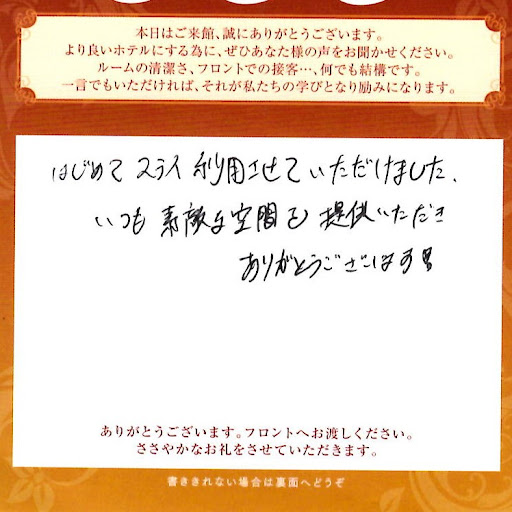 本日はご来館、誠にありがとうございます。
より良いホテルにする為に、ぜひあなた様の声をお聞かせください。
ルームの清潔さ、フロントでの接客…、何でも結構です。
一言でもいただければ、それが私たちの学びとなり励みになります。
はじめて ステイ 利用させていただけました。
いつも 素敵な空間を 提供いただき
ありがとうございます
ありがとうございます。フロントへお渡しください。
ささやかなお礼をさせていただきます。
書ききれない場合は裏面へどうぞ